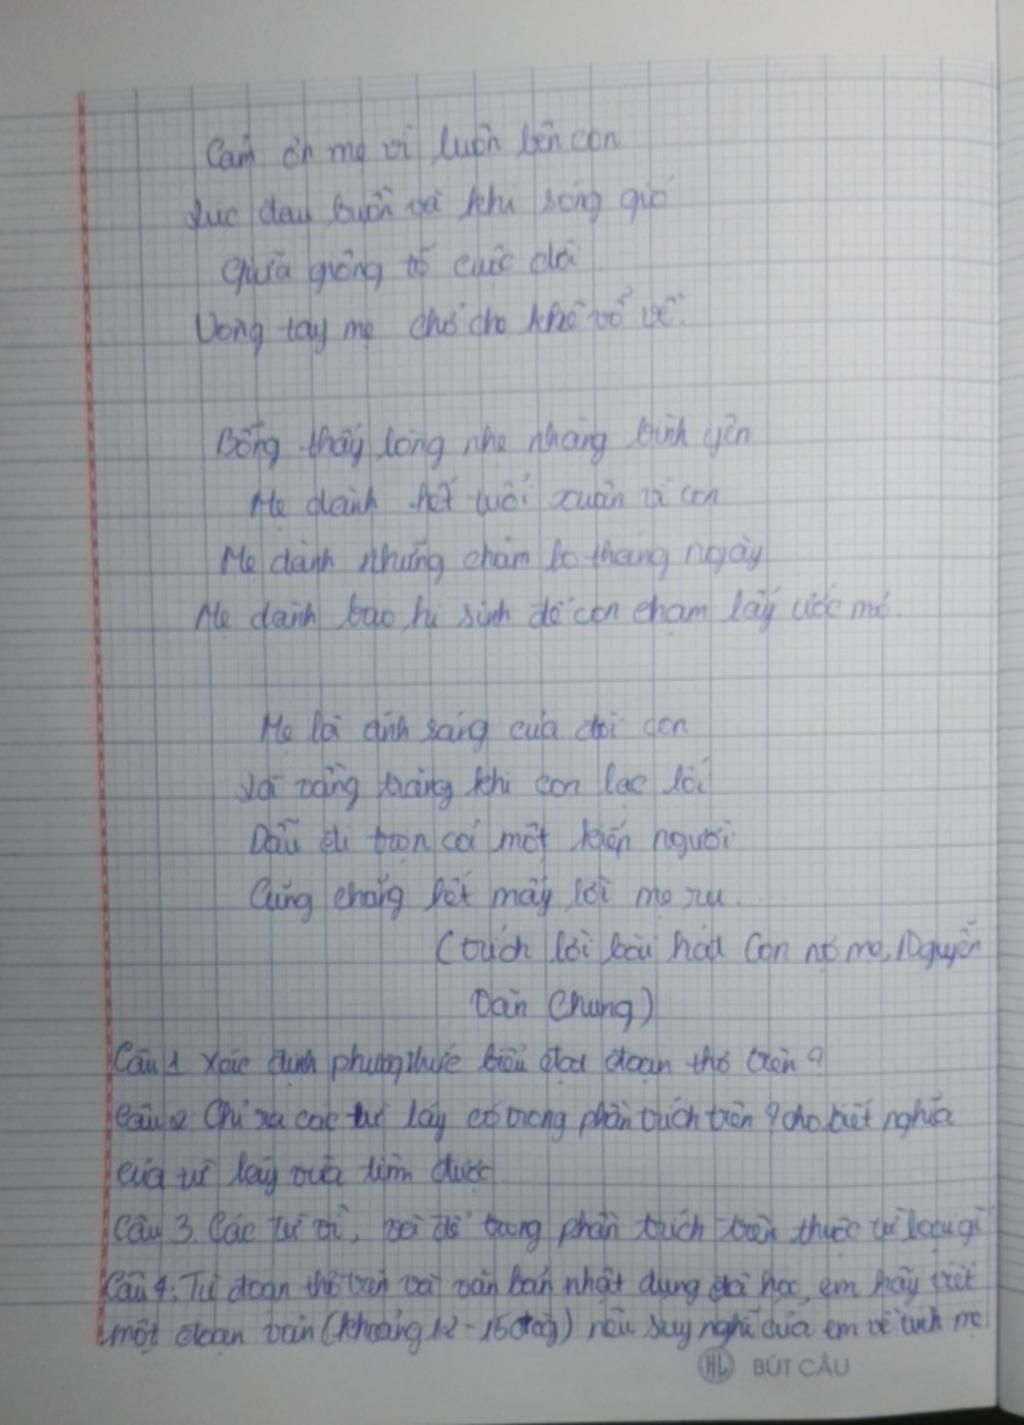 Cảm ơn mẹ vì luôn bên con
Lúc đau buồn và khi sóng gió
Giữa giông tố cuộc đời
Vòng tay mẹ chở che khẽ vỗ về.
Bỗng thấy lòng nhẹ nhàng bình yên
Mẹ dành hết tuổi xuân vì con
Mẹ dành những chăm lo tháng ngày
Mẹ dành bao hi sinh để con chạm lấy ước mơ.
Mẹ là ánh sáng của đời con
Là vầng trăng khi con lạc lối
Dẫu đi trọn cả một kiếp người
Cũng chẳng hết mấy lời mẹ ru...
(trích lời bài hát Con nợ mẹ, Nguyễn
Văn Chung)
Câu 1 Xác định phương thức biểu đạt đoạn thơ trên?
Câu 2 Chỉ ra các từ láy có trong phần trích trên? cho biết nghĩa
của từ láy vừa tìm được
Câu 3. Các từ vì, và để trong phần trích trên thuộc từ loại gì
Câu 4. Từ đoạn thơ trên và văn bản nhật dụng đã học, em hãy viết
một đoạn văn (khoảng 12-15 dòng) nêu suy nghĩ của em về tình mẹ
HL BÚT CÂU